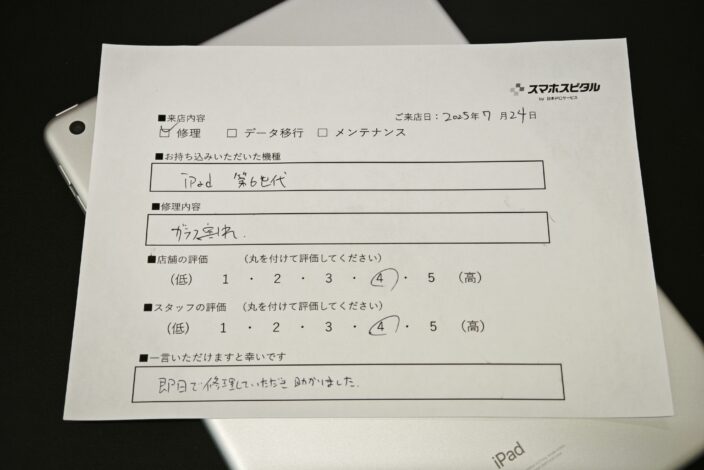 スマホスピタル
by 日本PCサービス
■来店内容
ご来店日：2025年7月24日
☑ 修理 □ データ移行 □ メンテナンス
■お持ち込みいただいた機種
iPad 第6世代
■修理内容
ガラス割れ.
■店舗の評価 （丸を付けて評価してください）
（低） 1 ・ 2 ・ 3 ・ 4 ・ 5 （高）
■スタッフの評価 （丸を付けて評価してください）
（低） 1 ・ 2 ・ 3 ・ 4 ・ 5 （高）
■一言いただけますと幸いです
即日で修理していただき助かりました.
iPad